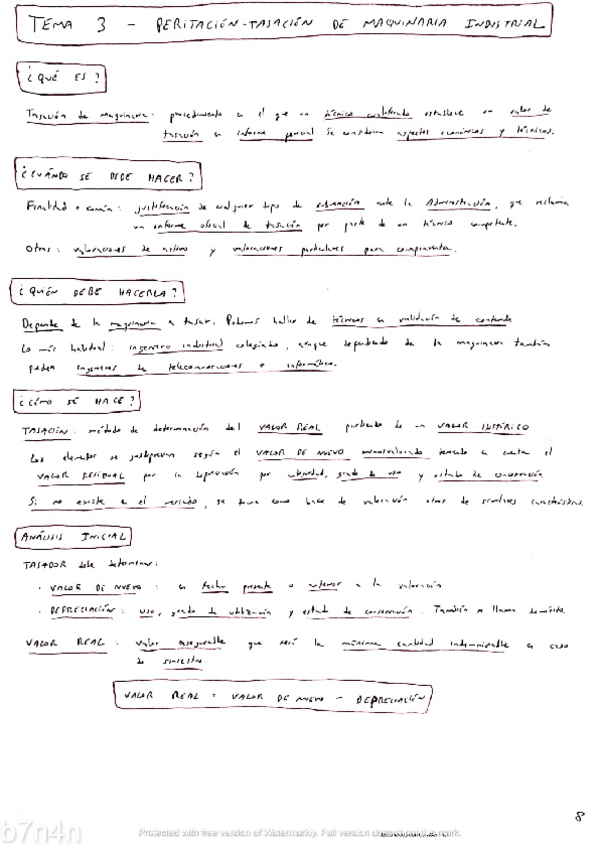 TEMA 3 - PERITACIÓN-TASACIÓN DE MAQUINARIA INDUSTRIAL
¿QUÉ ES?
Tasación de maquinaria: procedimiento en el que un técnico cualificado establece un valor de
tasación en informe pericial. Se consideran aspectos económicos y técnicos.
¿CUÁNDO SE DEBE HACER?
Finalidad + común: justificación de cualquier tipo de subvención ante la Administración, que reclama
un informe oficial de tasación por parte de un técnico competente.
Otros: valoraciones de activo y valoraciones particulares para compraventa.
¿QUIÉN DEBE HACERLA?
Depende de la maquinaria a tasar. Podemos hablar de técnicos en validación de contenido
Lo más habitual: ingeniero industrial colegiado, aunque dependiendo de la maquinaria también
pueden ingenieros de telecomunicaciones o informática.
¿CÓMO SE HACE?
TASACIÓN: método de determinación del VALOR REAL partiendo de un VALOR HISTÓRICO
Los elementos se justiprecian según el VALOR DE NUEVO teniendo en cuenta el
VALOR RESIDUAL por la depreciación por antigüedad, grado de uso y estado de conservación.
Si no existe en el mercado, se toma como base de valoración otros de similares características.
ANÁLISIS INICIAL
TASADOR debe determinar:
· VALOR DE NUEVO: en fecha presente o anterior a la valoración
· DEPRECIACIÓN: uso, grado de utilización y estado de conservación. También se llama demérito.
VALOR REAL: valor asegurable que será la máxima cantidad indemnizable en caso
de siniestro.
VALOR REAL = VALOR DE NUEVO - DEPRECIACIÓN
8
b7n4n
Protected with free version of Watermarkly. Full version doesn't put this mark.